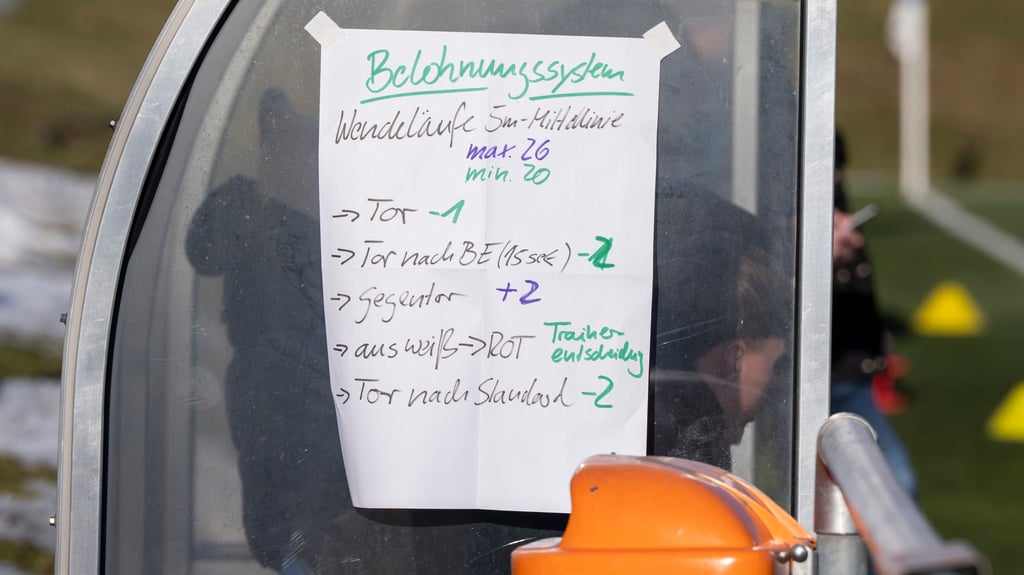 Belohnungssystem
Wendeläufe 5m-Mittellinie
max. 26
min. 20
→ Tor -1
→ Tor nach BE (15 sec) -2
→ Gegentor +2
→ aus weiß → ROT Trainer-
entscheidung
→ Tor nach Standard -2